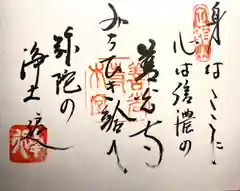 身はこゝに
心は信濃の
善光寺
みちびき給へ
弥陀の
浄土へ